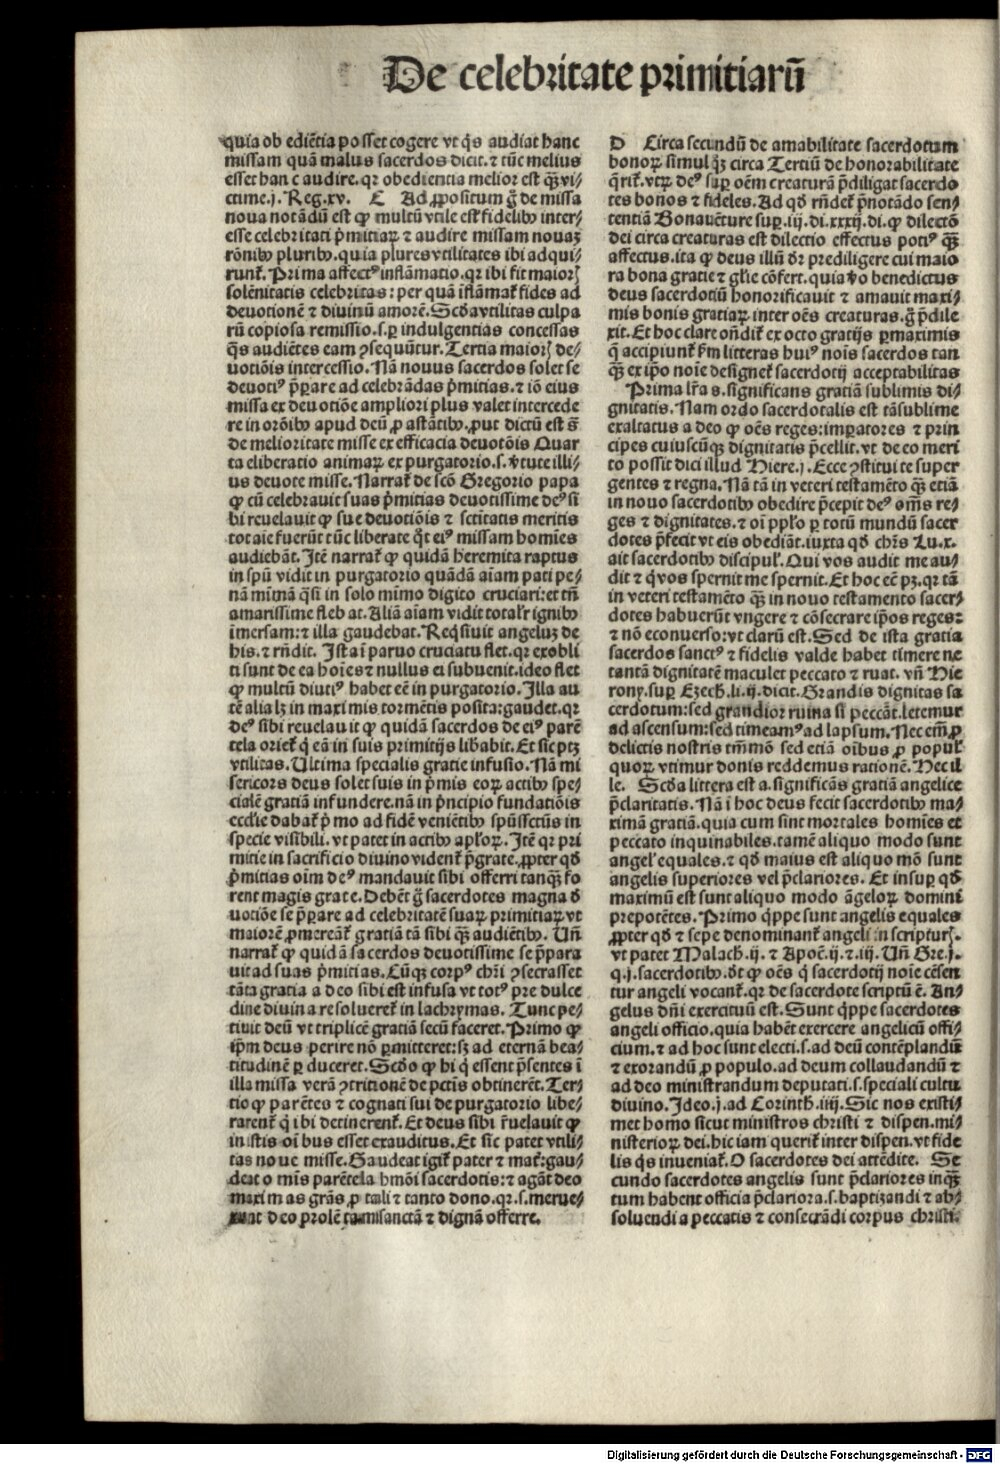 De celebritate primitiarū
quia ob ediētia posset cogere vt q̇s audiat hanc
missam quā malus sacerdos dicit. ⁊ tūc melius
esset hanc audire. qr obedientia melior est q̄ꝫ vi⸗
ctime. j. Reg. xv. C Ad ꝓpositum ḡ de missa
noua notādū est ꝙ multū vtile est fidelibꝰ inter⸗
esse celebritati p̄mitiaꝝ ⁊ audire missam nouaꝫ
rōnibꝰ pluribꝰ. quia plures vtilitates ibi adqui⸗
runt̄. Prima affectꝰ inflāmatio. qr ibi fit maior
solēnitatis celebritas: per quā īflāmat̄ fides ad
deuotionē ⁊ diuinū amorē. Scd̄a vtilitas culpa
rū copiosa remissio. s. ꝑ indulgentias concessas
q̄s audiētes eam ꝯsequūtur. Tertia maior de⸗
uotiōis intercessio. Nā nouus sacerdos solet se
deuotiꝰ p̄ꝑare ad celebrādas p̄mitias. ⁊ iō eius
missa ex deuotiōe ampliori plus valet intercede
re in orōibꝰ apud deū ꝓ astātibꝰ. ꝓut dictū est s̄
de melioritate misse ex efficacia deuotōis Quar
ta eliberatio animaꝝ ex purgatorio. s. v̄tute illi⸗
us deuote misse. Narrat̄ de scō Gregorio papa
ꝙ cū celebrauit suas p̄mitias deuotissime deꝰ si
bi reuelauit ꝙ sue deuotiōis ⁊ sctītatis meritis
tot aīe fuerūt tūc liberate q̇t eiꝰ missam homīes
audiebāt. Itē narrat̄ ꝙ quidā heremita raptus
in spū vidit in purgatorio quādā aīam pati pe⸗
nā mīmā q̄si in solo mīmo digito cruciari: et tn̄
amarissime flebat. Aliā aīam vidit totalr ignibꝰ
īmersam: ⁊ illa gaudebat. Req̇siuit angeluꝫ de
his. ⁊ rn̄dit. Ista ī paruo cruciatu flet. qr exobli
ti sunt de ea hoīes ⁊ nullus ei subuenit. ideo flet
ꝙ multū diutiꝰ habet eē in purgatorio. Illa au
tē alia lꝫ in maximis tormētis posita: gaudet. qr
deꝰ sibi reuelauit ꝙ quidā sacerdos de eiꝰ parē
tela oriet̄ q̇ eā in suis primitijs lib̄abit. Et sic ptꝫ
vtilitas. Ultima specialis gratie infusio. Nā mi
sericors deus solet suis in p̄mis eoꝝ actibꝰ spe⸗
cialē gratiā infundere. nā in p̄ncipio fundatiōis
eccl̄ie dabat̄ p̄mo ad fidē veniētibꝰ spūssctūs in
specie visibili. vt patet in actibꝰ apl̄oꝝ. Itē qr pri
mitie in sacrificio diuino vident̄ p̄grate. ꝓpter qd̄
p̄mitias oīm deꝰ mandauit sibi offerri tanq̄ꝫ fo
rent magis grate. Debēt ḡ sacerdotes magna d̄
uotiōe se p̄ꝑare ad celebritatē suaꝝ primitiaꝝ vt
maiorē ꝓmereāt̄ gratiā tā sibi q̄ꝫ audiētibꝰ. Un̄
narrat̄ ꝙ quidā sacerdos deuotissime se p̄para
uit ad suas p̄mitias. Cūqꝫ corpꝰ chr̄i ꝯsecrasset
tāta gratia a deo sibi est infusa vt totꝰ pre dulce
dine diuina resolueret̄ in lachrymas. Tunc pe⸗
tiuit deū vt triplicē gratiā secū faceret. Primo ꝙ
ip̄m deus perire nō ꝑmitteret: sꝫ ad eternā bea⸗
titudinē ꝑduceret. Scd̄o ꝙ hi q̇ essent p̄sentes ī
illa missa verā ꝯtritionē de pctīs obtinerēt. Ter⸗
tio ꝙ parētes ⁊ cognati sui de purgatorio libe⸗
rarent̄ q̇ ibi detinerent̄. Et deus sibi r̄uelauit ꝙ
in istis oībus esset exauditus. Et sic patet vtili⸗
tas noue misse. Gaudeat igit̄ pater ⁊ mat̄: gau⸗
deat omīs parētela hmōi sacerdotis: ⁊ agāt deo
maximas grās ꝓ tali ⁊ tanto dono. qr. s. merue⸗
deo prolē tam sanctā ⁊ dignā offerre.
D Circa secundū de amabilitate sacerdotum
honoꝝ simul qꝫ circa Tertiū de honorabilitate
q̄rit̄. vtꝝ deꝰ suꝑ oēm creaturā p̄diligat sacerdo
tes bonos ⁊ fideles. Ad qd̄ rn̄det̄ p̄notādo sen⸗
tentiā Bonauēture suꝑ. iij. di. xxxij. di. ꝙ dilectō
dei circa creaturas est dilectio effectus potiꝰ q̄ꝫ
affectus. ita ꝙ deus illū dr̄ prediligere cui maio
ra bona gratie ⁊ gl̄ie cōfert. quia v̄o benedictus
deus sacerdotiū honorificauit ⁊ amauit maxi⸗
mis bonis gratiaꝝ inter oēs creaturas. ḡ p̄dile
xit. Et hoc clare on̄dit̄ ex octo gratijs ꝑmaximis
q̄ accipiunt̄ fm litteras huiꝰ noīs sacerdos tan
q̄ꝫ ex ip̄o noīe designet̄ sacerdotij acceptabilitas
Prima lr̄a s. significans gratiā sublimis di⸗
gnitatis. Nam ordo sacerdotalis est tā sublime
exaltatus a deo ꝙ oēs reges: imꝑatores ⁊ prin
cipes cuiuscūqꝫ dignitatis p̄cellit. vt de eo meri
to possit dici illud Hiere. j. Ecce ꝯstitui te super
gentes ⁊ regna. Nā tā in veteri testamēto q̄ꝫ etiā
in nouo sacerdotibꝰ obedire p̄cepit deꝰ om̄s re⸗
ges ⁊ dignitates. ⁊ oī ppl̄o ꝑ totū mundū sacer
dotes p̄fecit vt eis obediāt. iuxta qd̄ chr̄s Lu. x.
ait sacerdotibꝰ discipul̓. Qui vos audit me au⸗
dit ⁊ q̇ vos spernit me spernit. Et hoc eē pꝫ. qr tā
in veteri testamēto q̄ꝫ in nouo testamento sacer⸗
dotes habuerūt vngere ⁊ cōsecrare ip̄os reges:
⁊ nō econuerso: vt clarū est. Sed de ista gratia
sacerdos sanctꝰ ⁊ fidelis valde habet timere ne
tantā dignitatē maculet peccato ⁊ ruat. vn̄ Hie
rony. suꝑ Ezech. li. ij. dicit. Grandis dignitas sa
cerdotum: sed grandior ruina si peccāt. letemur
ad ascensum: sed timeamꝰ ad lapsum. Nec em̄ ꝓ
delictis nostris tm̄mō sed etiā oībus ꝓ popul̓
quoꝝ vtimur donis reddemus rationē. Hec il
le. Scd̄a littera est a. significās gratiā angelice
p̄claritatis. Nā ī hoc deus fecit sacerdotibꝰ ma⸗
ximā gratiā. quia cum sint mortales homīes et
peccato inquinabiles. tamē aliquo modo sunt
angel̓ equales. ⁊ qd̄ maius est aliquo mō sunt
angelis superiores vel p̄clariores. Et insuꝑ qd̄
maximū est sunt aliquo modo āgeloꝝ domini
prepotētes. Primo q̇ppe sunt angelis equales
ꝓpter qd̄ ⁊ sepe denominant̄ angeli in scriptur̄.
vt patet Malach. ij. ⁊ Apoc̄. ij. ⁊. iij. Un̄ Gre. j.
q. j. sacerdotibꝰ. d̄t ꝙ oēs q̇ sacerdotij noīe cēsen
tur angeli vocant̄. qr de sacerdote scriptū ē. An⸗
gelus dn̄i exercituū est. Sunt q̇ppe sacerdotes
angeli officio. quia habēt exercere angelicū offi⸗
cium. ⁊ ad hoc sunt electi. s. ad deū contēplandū
⁊ exorandū ꝓ populo. ad deum collaudandū ⁊
ad deo ministrandum deputati. s. speciali cultu
diuino. Ideo. j. ad Corinth. iiij. Sic nos existi⸗
met homo sicut ministros christi ⁊ dispen. mi⸗
nisterioꝝ dei. hic iam querit̄ inter dispen. vt fide
lis q̇s inueniat̄. O sacerdotes dei attēdite. Se
cundo sacerdotes angelis sunt p̄clariores inq̄ꝫ
tum habent officia p̄clariora. s. baptizandi ⁊ ab⸗
soluendi a peccatis ⁊ consecrādi corpus christi.
Digitalisierung gefördert durch die Deutsche Forschungsgemeinschaft - DFG